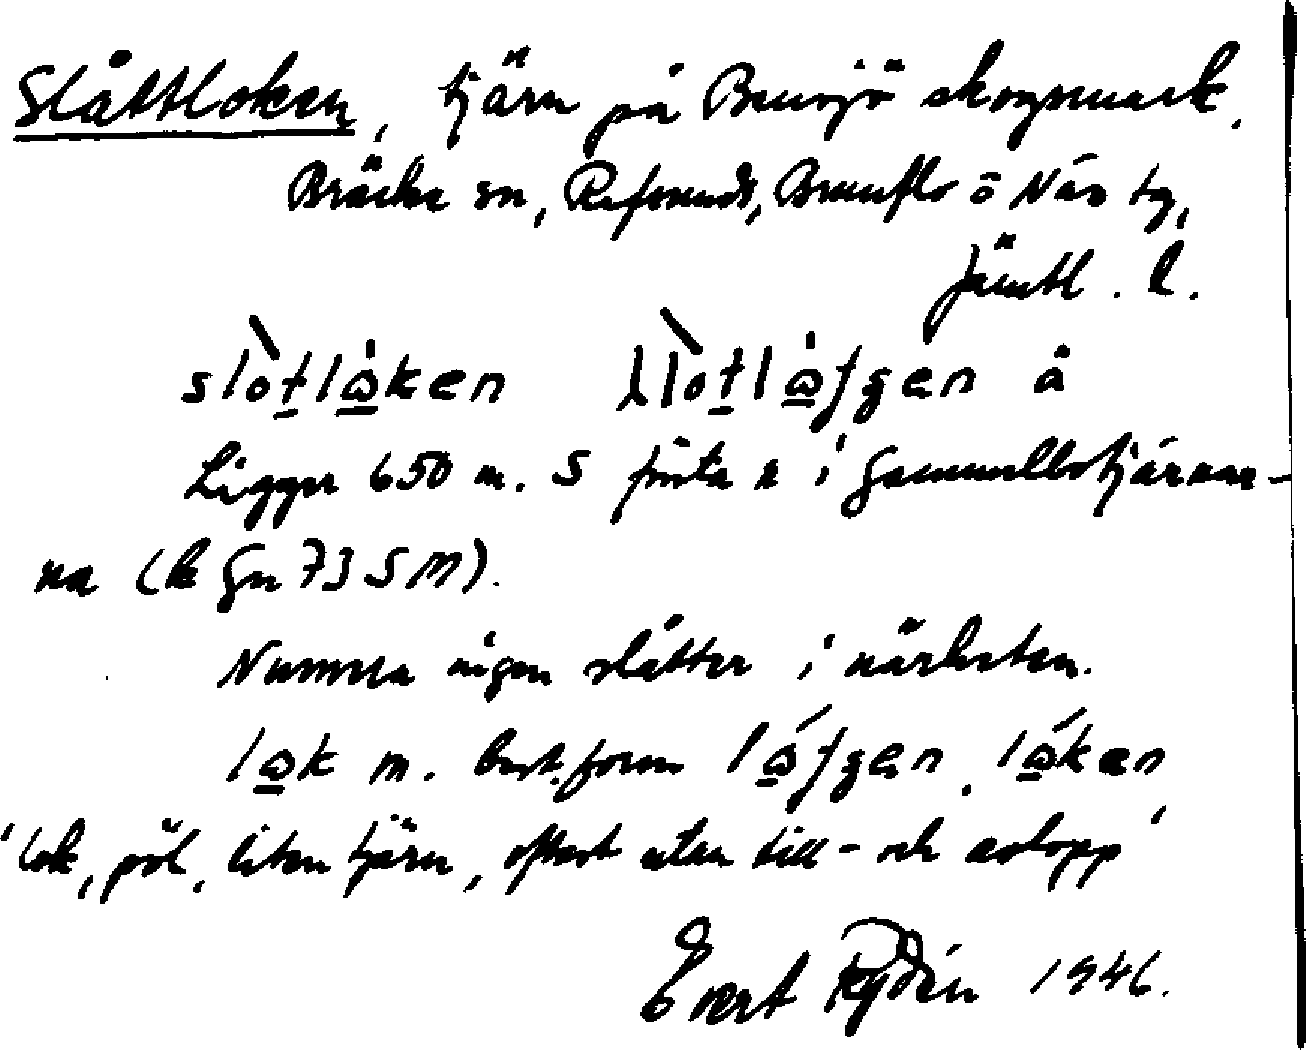 Slåttloken, tjärn på Bensjö skogsmark.
Bräcke sn, Refsunds, Brunflo o Näs tg,
Jämtl. l.
slòtlåken llòtlåfgen å
Ligger 650 m. S första n i Gammelbotjärnar-
na (k Gn 73 S M).
Numera ingen slåtter i närheten.
lak m. best. form láfgen, láken
'lok, pöl, liten tjärn, oftast utan till- och avlopp'
Evert Rydén 1946.